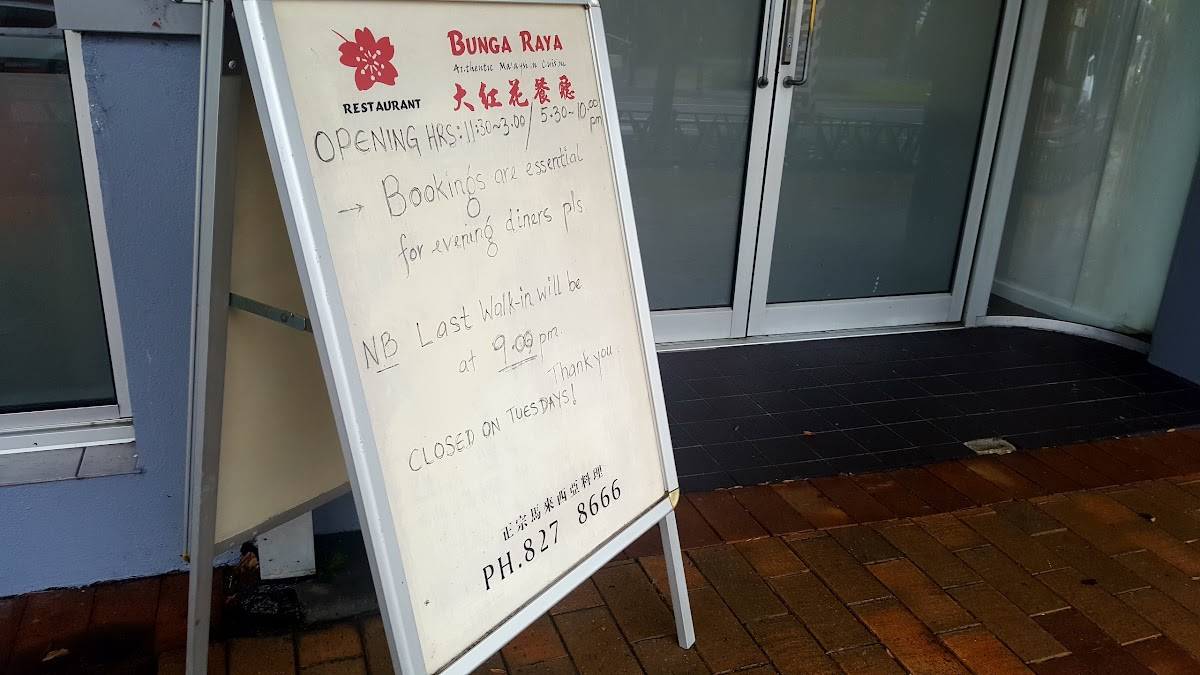 BUNGA RAYA
Authentic Malaysian Cuisine
RESTAURANT
大紅花餐廳
OPENING HRS: 11:30~3.00 / 5.30~10.00 pm
→ Bookings are essential
for evening diners pls
NB Last Walk-in will be
at 9.00 pm.
Thank you.
CLOSED ON TUESDAYS!
正宗馬來西亞料理
PH. 827 8666